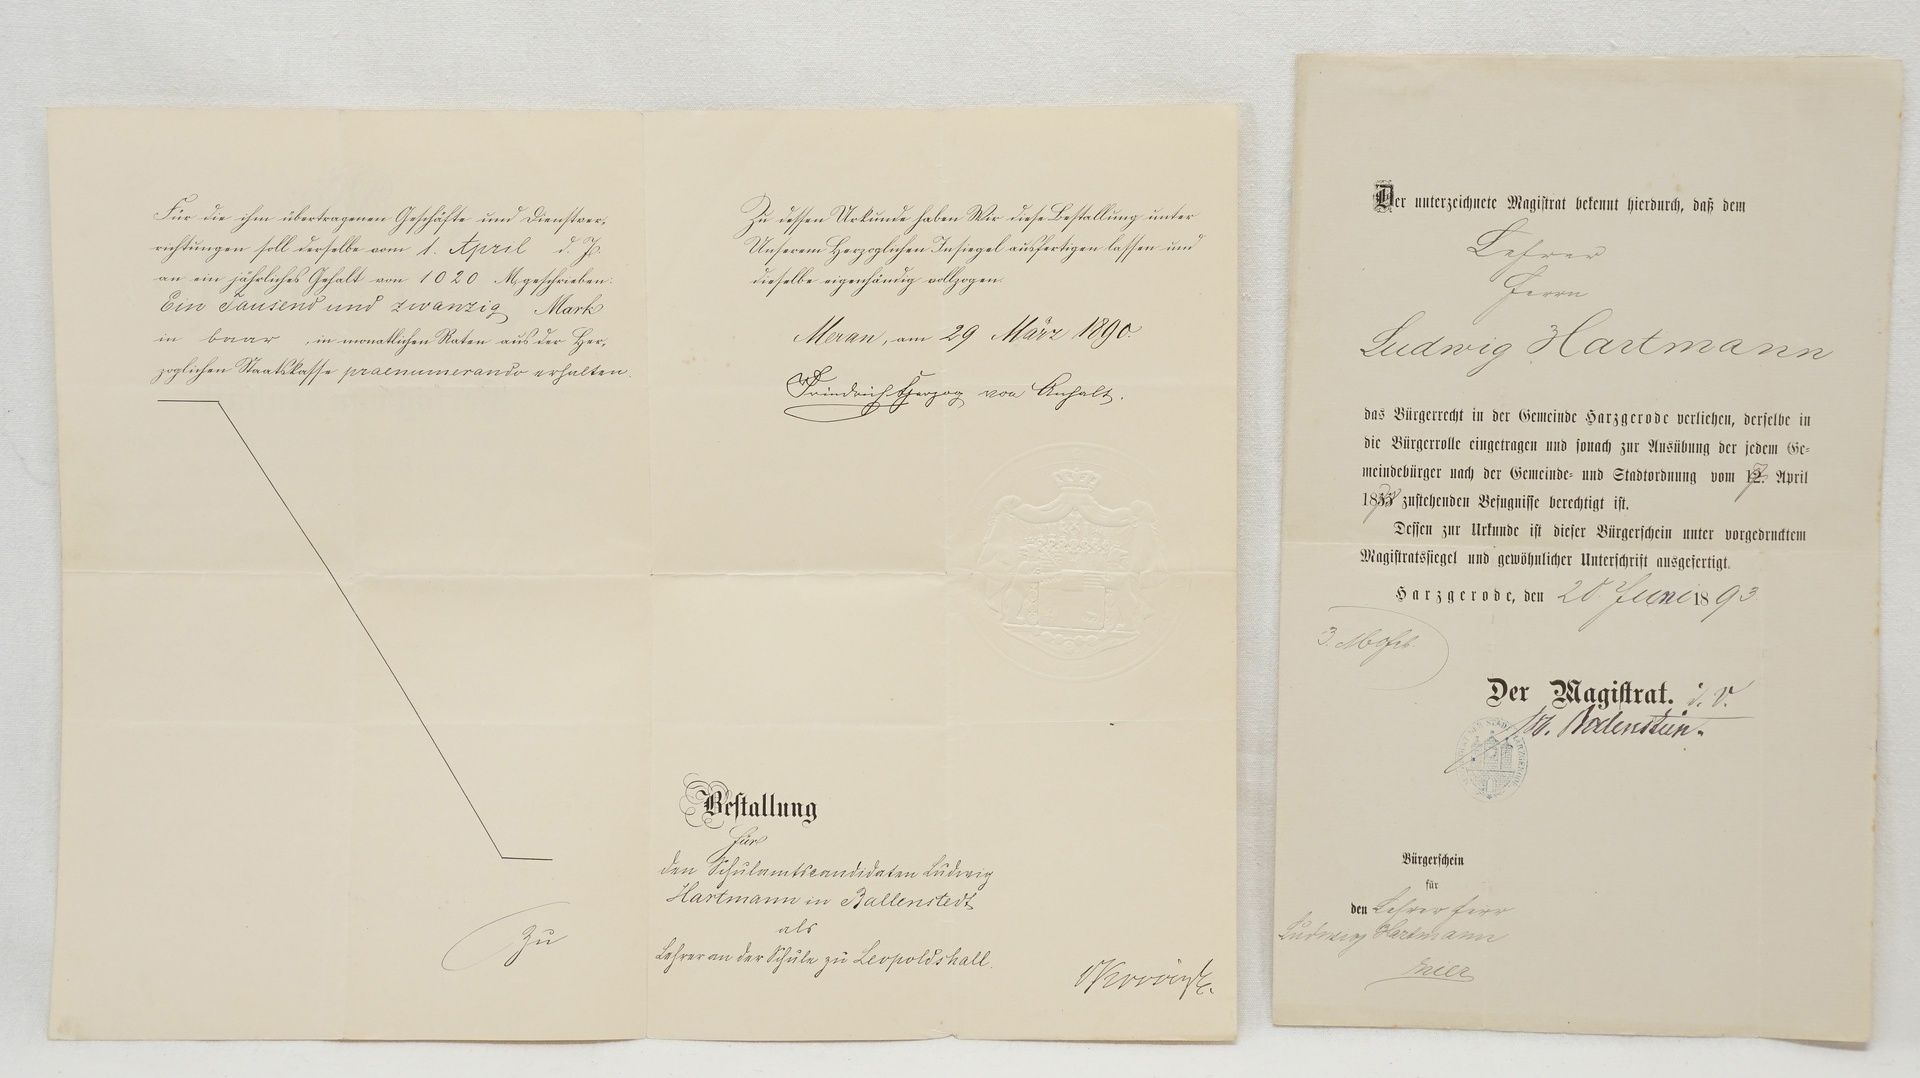 Für die ihm übertragenen Geschäfte und Dienstver-
richtungen soll derselbe vom 1. April d. Js.
an ein jährliches Gehalt von 1020 M, geschrieben:
Ein Tausend und zwanzig Mark
in baar, in monatlichen Raten aus der Her-
zoglichen Staatskasse praenumerando erhalten.
Zu
Zu dessen Urkunde haben Wir diese Bestallung unter
Unserem Herzoglichen Insiegel ausfertigen lassen und
dieselbe eigenhändig vollzogen.
Meran, am 29 März 1890.
Friedrich Herzog von Anhalt.
Bestallung
für
den Schulamtscandidaten Ludwig
Hartmann in Ballenstedt
als
Lehrer an der Schule zu Leopoldshall.
Der unterzeichnete Magistrat bekennt hierdurch, daß dem
Lehrer
Herrn
Ludwig Hartmann
das Bürgerrecht in der Gemeinde Harzgerode verliehen, derselbe in
die Bürgerrolle eingetragen und sonach zur Ausübung der jedem Ge-
meindebürger nach der Gemeinde- und Stadtordnung vom April
zustehenden Befugnisse berechtigt ist.
Dessen zur Urkunde ist dieser Bürgerschein unter vorgedrucktem
Magistratssiegel und gewöhnlicher Unterschrift ausgefertigt.
Harzgerode, den 20. Juni 1893
Der Magistrat. i. V.
W. Bodenstein.
Bürgerschein
für
den Lehrer Herr
Ludwig Hartmann
hier